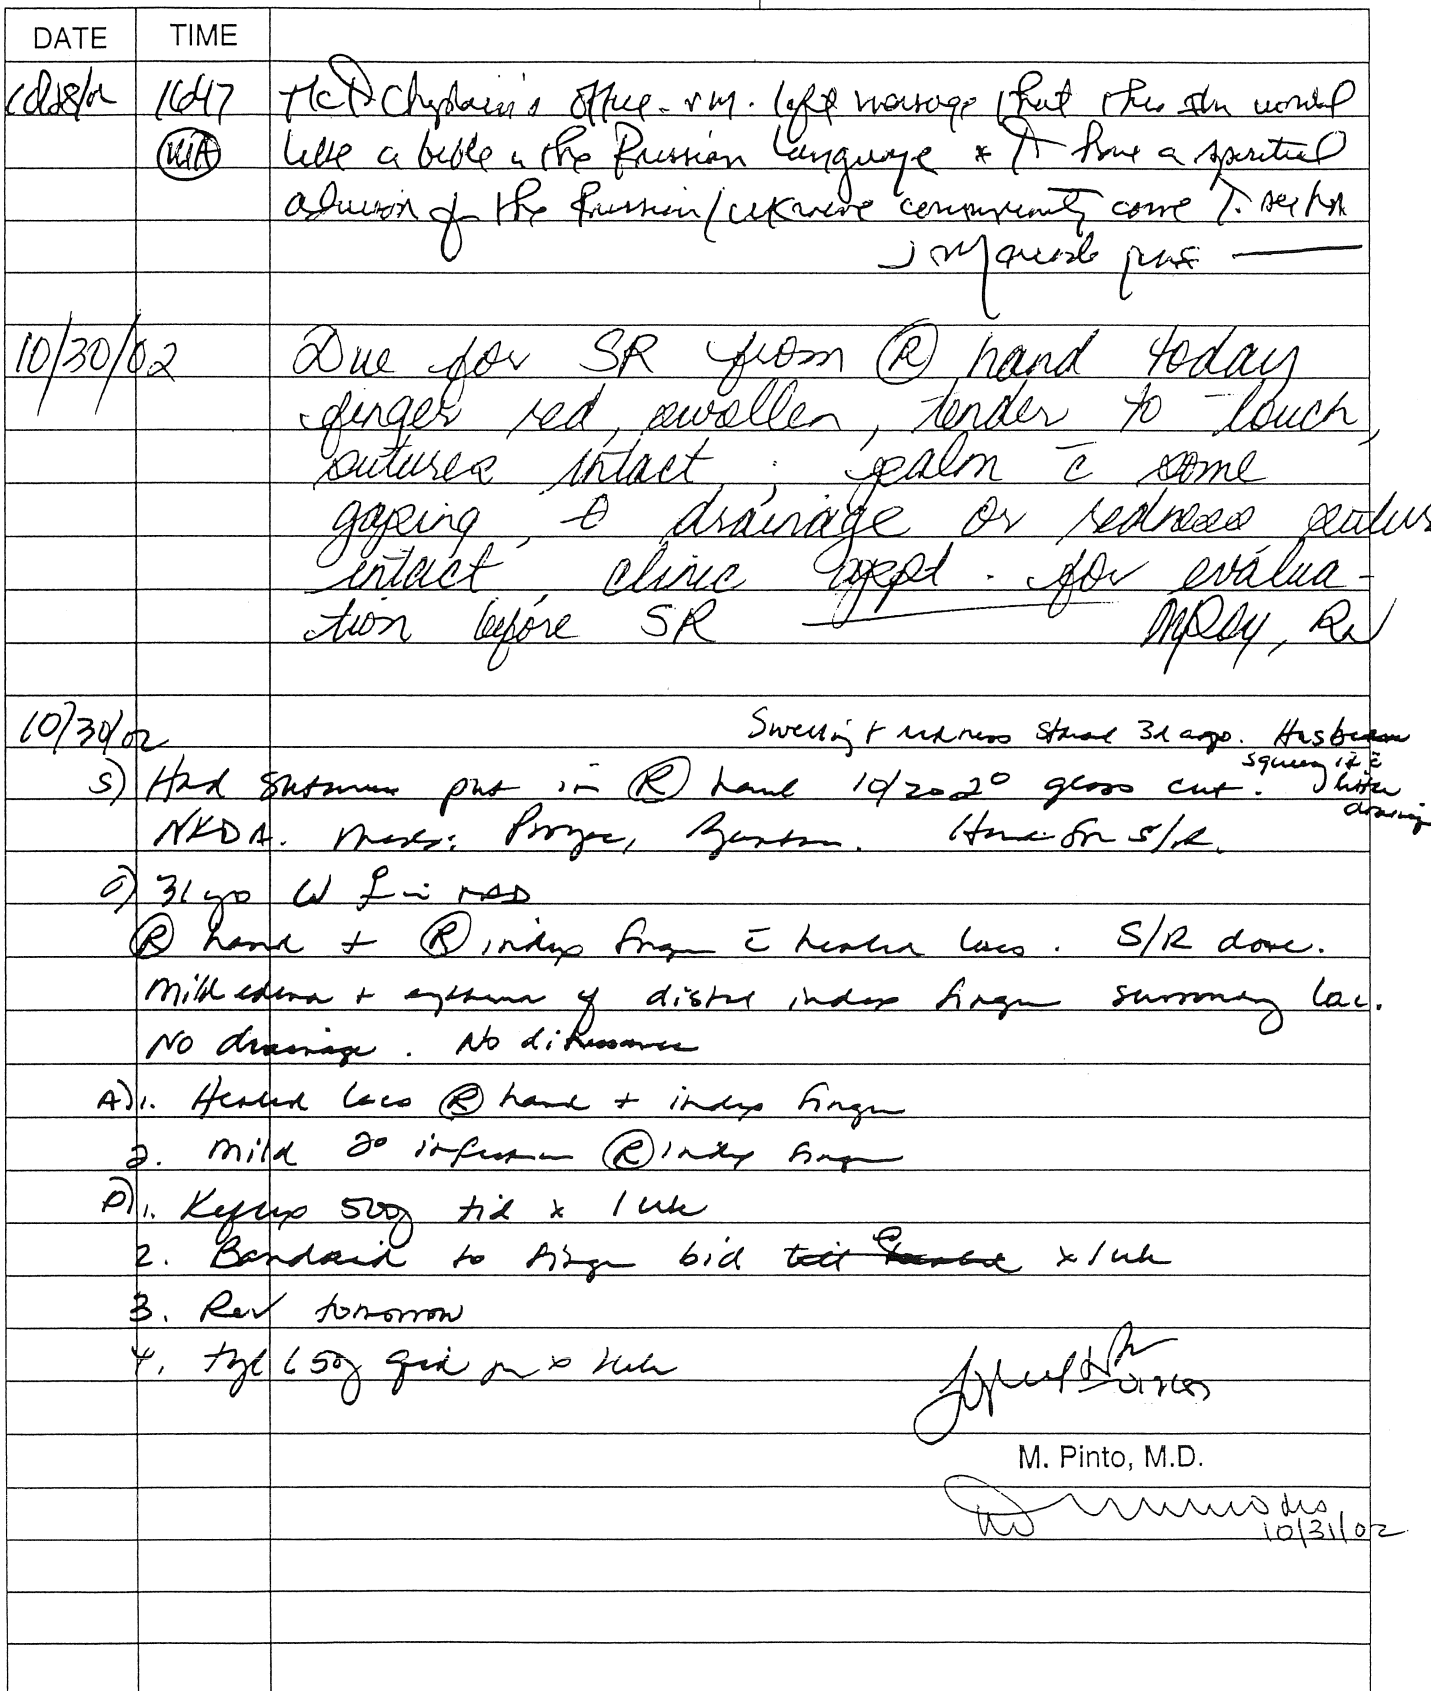 DATE TIME
10/28/02 1647 Chaplain's office. v.m. left message that this would
like a bible in the Russian Language & to have a spiritual
of the Russian/Ukraine community come to see her

10/30/02 Due for SR from Ⓡ hand today
finger red, swollen, tender to touch,
sutures intact. palm c̄ some
gaping, drainage or redness sutures
intact clinic appt. for evalua-
tion before SR RN
10/30/02 Swelling + redness started 3d ago. Has been
squeezing it c̄
little
drainage
S) Had sutures put in Ⓡ hand 10/20 2° glass cut.
NKDA. Meds: Here for S/R.
O) 31 yo W F in NAD
Ⓡ hand + Ⓡ index finger c̄ healed lacs. S/R done.
Mild edema + erythema of distal index finger lac.
No drainage. No
A) 1. Healed lacs Ⓡ hand + index finger
2. Mild 2° infection Ⓡ index finger
P) 1. Keflex 500 tid x 1 wk
2. Bandaid to finger bid x 1 wk
3. tomorrow
4. Tyl 650 qid x
M. Pinto, M.D.
10/31/02